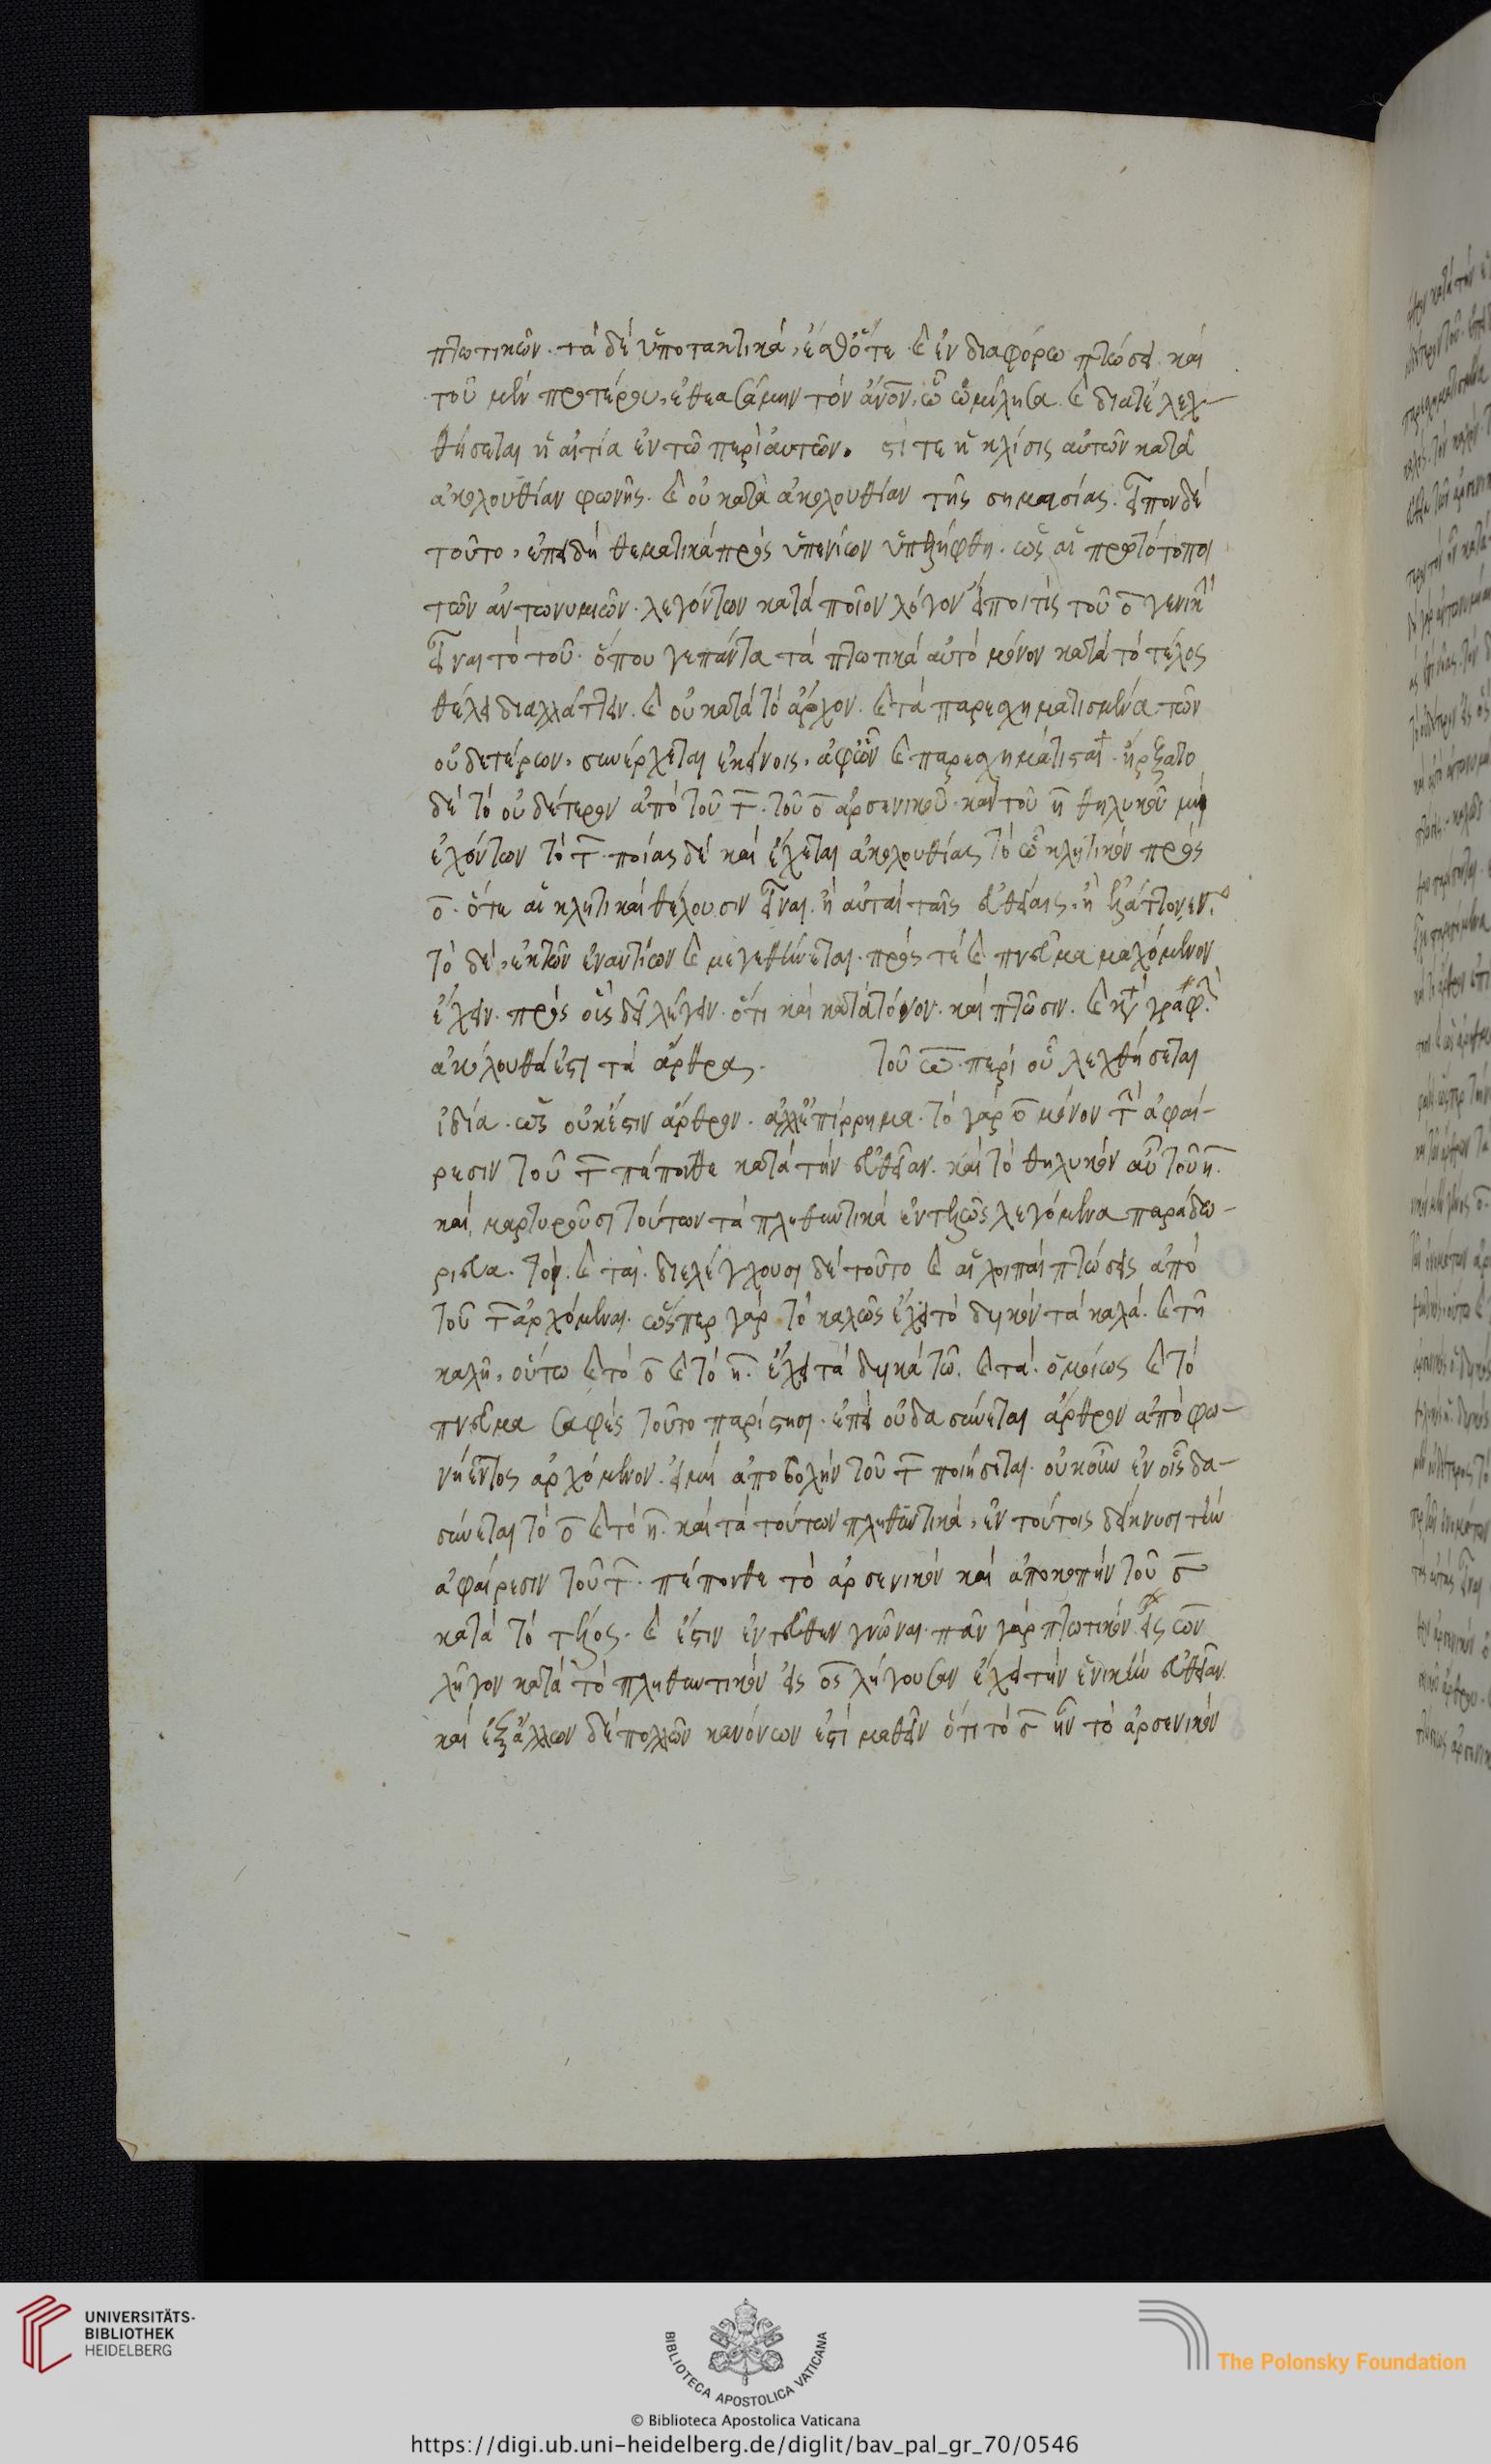 πτωτικῶν. τὰ δὲ ὑποτακτικὰ, ἔσθ' ὅτε καὶ ἐν διαφόρω πτώσει. καὶ
τοῦ μὲν προτέρου, ἐθεασάμην τὸν ἄνον, ὧ ὡμίλησα. καὶ διατί λεχ-
θήσεται ἡ αἰτία ἐν τῶ περὶ αὐτῶν. τίς τε ἡ κλίσις αὐτῶν κατὰ
ἀκολουθίαν φωνῆς. καὶ οὐ κατὰ ἀκολουθίαν τῆς σημασίας. εἶπον δὲ
τοῦτο, ἐπειδὴ θεματικὰ πρὸς ὑπενίων ὑπελήφθη. ὡς αἱ πρωτότυποι
τῶν ἀντωνυμιῶν. λεγόντων κατὰ ποῖον λόγον εἴποι τίς τοῦ ο γενικὴ
εἶναι τὸ τοῦ. ὅπου γε πάντα τὰ πτωτικὰ αὐτὸ μόνον κατὰ τὸ τέλος
θέλει διαλλάττειν. καὶ οὐ κατὰ τὸ ἄρχον. καὶ τὰ παρεσχηματισμένα τῶν
οὐδετέρων, συνέρχεται ἐκείνοις, ἀφ' ὧν καὶ παρεσχημάτισται. ἤρξατο
δὲ τὸ οὐδέτερον ἀπὸ τοῦ τ. τοῦ ο ἀρσενικοῦ. καὶ τοῦ η θηλυκοῦ μὴ
ἐχόντων τὸ τ. ποίας δὲ καὶ ἔχεται ἀκολουθίας τὸ ὦ κλητικὸν πρὸς
ο. ὅτε αἱ κλητικαὶ θέλουσιν εἶναι. ἢ αὐταὶ ταῖς εὐθείαις. ἢ ἐλάττονες.
τὸ δὲ, ἐκ τῶν ἐναντίων καὶ μεγεθύνεται. πρὸς τὲ καὶ πνεῦμα μαχόμενον
ἔχειν. πρὸς οἷς δεῖ λέγειν. ὅτι καὶ κατὰ τόνον. καὶ πτῶσιν. καὶ γραφὴν
ἀκόλουθά ἐστι τὰ ἄρθρα. τοῦ ω. περὶ οὗ λεχθήσεται
ἰδία. ὡς οὐκ ἔστιν ἄρθρον. ἀλλ' ἐπίρρημα. τὸ γὰρ ο μόνον τὴν ἀφαί-
ρεσιν τοῦ τ πέπονθε κατὰ τὴν εὐθεῖαν. καὶ τὸ θηλυκὸν αὐτοῦ η.
καὶ μαρτυροῦσι τούτων τὰ πληθυντικὰ ἐντελῶς λεγόμενα παρὰ δω-
ριεῦσα. τοί. καὶ ταί. διελέγχουσι δὲ τοῦτο καὶ αἱ λοιπαὶ πτώσεις ἀπὸ
τοῦ τ ἀρχόμεναι. ὥσπερ γὰρ τὸ καλῶς ἔχει τὸ δυικὸν τὰ καλά. καὶ τῆ
καλῆ, οὕτω καὶ τὸ ο καὶ τὸ η. ἔχει τὰ δυικὰ τώ. καὶ τά. ὁμοίως καὶ τὸ
πνεῦμα σαφὲς τοῦτο παρίστησι. ἐπεὶ οὐ δασύνεται ἄρθρον ἀπὸ φω-
νήεντος ἀρχόμενον. εἰ μὴ ἀποβολὴν τοῦ τ ποιήσεται. οὐκοῦν ἐν οἷς δα-
σύνεται τὸ ο καὶ τὸ η. καὶ τὰ τούτων πληθυντικὰ, ἐν τούτοις δείκνυσι τὴν
ἀφαίρεσιν τοῦ τ. πέπονθε τὸ ἀρσενικὸν καὶ ἀποκοπὴν τοῦ σ
κατὰ τὸ τέλος. καὶ ἔστιν ἐντεῦθεν γνῶναι. πᾶν γὰρ πτωτικὸν εἰς ων
λῆγον κατὰ τὸ πληθυντικὸν εἰς ος λήγουσαν ἔχει τὴν ἑνικὴν εὐθεῖαν.
καὶ ἐξ ἄλλων δὲ πολλῶν κανόνων ἐστὶ μαθεῖν ὅτι τὸ σ ἦν τὸ ἀρσενικὸν
UNIVERSITÄTS-
BIBLIOTHEK
HEIDELBERG
BIBLIOTECA APOSTOLICA VATICANA
The Polonsky Foundation
© Biblioteca Apostolica Vaticana
https://digi.ub.uni-heidelberg.de/diglit/bav_pal_gr_70/0546